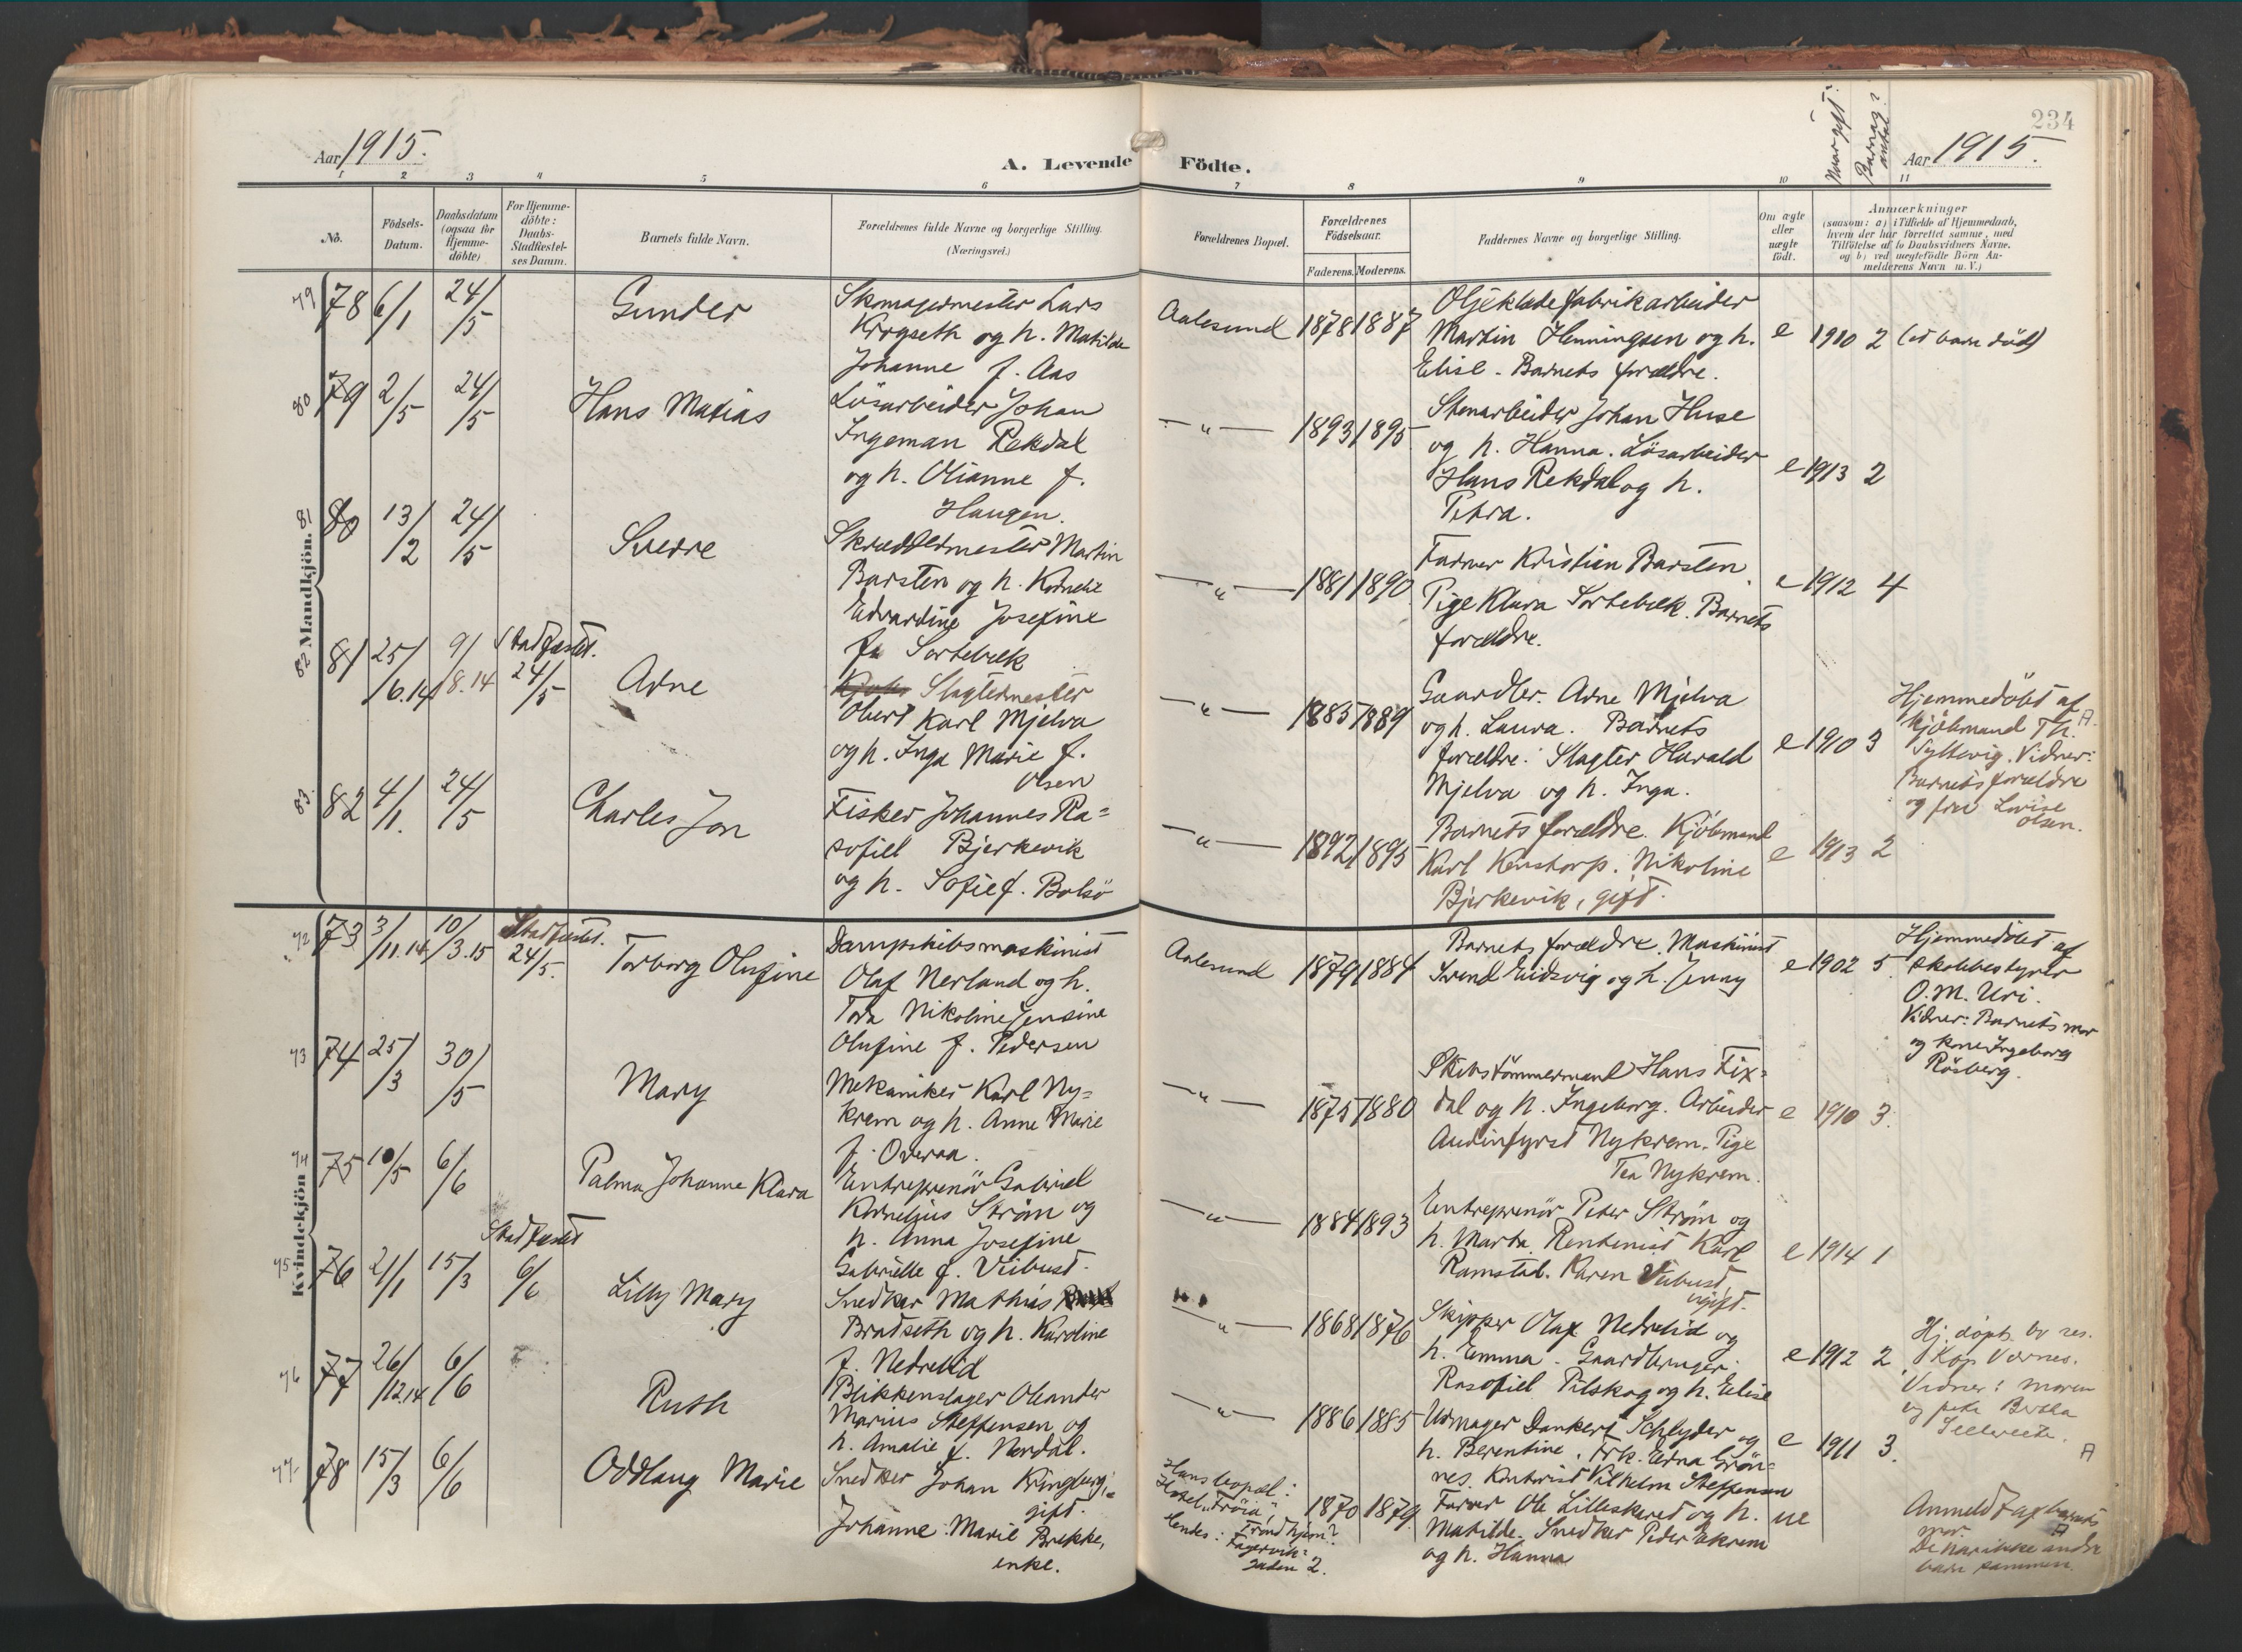 Aar 1915.
A. Levende Födte.
234
Naar gift?
Barnas antal?
Aar 1915.
1 2 3 4 5 6 7 8 9 10 11
No.
Födsels-Datum.
Daabsdatum (ogsaa for Hjemmedöbte)
For Hjemmedöbte: Daabs-Stadfæstelses Datum.
Barnets fulde Navn.
Forældrenes fulde Navne og borgerlige Stilling. (Næringsvei.)
Forældrenes Bopæl.
Forældrenes Födselsaar.
Faderens. Moderens.
Faddernes Navne og borgerlige Stilling.
Om ægte eller uægte födt.
Anmærkninger
(saasom: a) i Tilfælde af Hjemmedaab,
hvem der har forrettet samme, med
Tilföielse af to Daabsvidners Navne.
og b) ved uægtefödte Börn An-
melderens Navn m. V.)
Mandkjön.
79 78 6/1 24/5 Gunder
Skomagermester Lars
Krogseth og h. Matilde
Johanne f. Aas
Aalesund 1878 1887
Oljeklædefabrikarbeider
Martin Henningsen og h.
Elise - Barnets forældre.
e 1910 2 (et barn död)
80 79 2/5 24/5 Hans Matias
Lösarbeider Johan
Ingeman Rekdal
og h. Olianne f.
Haugen.
— " — 1893 1895
Stenarbeider Johan Huse
og h. Hanna. Lösarbeider
Hans Rekdal og h.
Petra.
e 1913 2
81 80 13/2 24/5 Sverre
Skræddermester Martin
Barsten og h. Kornelie
Edvardine Josefine
f. Sortebæk
— " — 1881 1890
Farver Kristian Barsten.
Pige Klara Sortebæk. Barnets
forældre.
e 1912 4
82 81 25/6.14 9/8.14 Stadfæstet. 24/5 Arne
Slagtermester
Obert Karl Mjelva
og h. Inga Marie f.
Olsen
— " — 1885 1889
Gaardbr. Arne Mjelva
og h. Laura. Barnets
forældre. Slagter Harald
Mjelva og h. Inga.
e 1910 3
Hjemmedöbt af
Kjöbmand Th.
Syltevig. Vidner:
Barnets forældre
og fru Lovise
Olsen.
83 82 4/1. 24/5 Charles Jon
Fisker Johannes Ra=
sofiel Bjerkevik
og h. Sofie f. Bolsö
— " — 1892 1895
Barnets forældre. Kjöbmand
Karl Nikoline
Bjerkevik, gift.
e 1913 2
Kvindekjön
72 73 3/11.14 10/3.15 Stadfæstet. 24/5. Torborg Olufine
Dampskibsmaskinist
Olaf Nerland og h.
Tora Nikoline Jensine
Olufine f. Pedersen
Aalesund 1879 1884
Barnets forældre. Maskinist
Svend Eidsvig og h. Jenny
e 1902 5.
Hjemmedöbt af
skolebestyrer
O. M. Uri.
Vidner: Barnets mor
og kone Ingeborg
Rösberg.
73 74 25/3 30/5 Mary
Mekaniker Karl Ny=
krem og h. Anne Marie
f. Overaa.
— " — 1875 1880
Skibstömmermand Hans Fix=
dal og h. Ingeborg. Arbeider
Nykrem. Pige
Tea Nykrem.
e 1910 3.
74 75 10/5 6/6 Palma Johanne Klara
Entreprenör Gabriel
Kornelius Ström og
h. Anna Josefine
Gabrielle f. Viibust.
— " — 1884 1893
Entreprenör Peter Ström og
h. Marta. Rentenist Karl
Ramstad. Karen Viibust,
ugift.
e 1914 1
75 76 21/1 15/3 Stadfæstet 6/6 Lilly Mary
Snedker Mathias
Bradseth og h. Karoline
f. Nedrelid
— " — 1868 1876
Skipper Olaf Nedrelid og
h. Emma. Gaardbruger
Rasofiel Pilskog og h. Elise
e 1912 2
Hj. döpt. av res.
Kap Værnes.
Vidner: moren
og
76 77 26/12.14 6/6 Ruth
Blikkenslager Oleander
Marius Steffensen og
h. Amalie f. Nordal.
— " — 1886 1885
Urmager Dankert Schlyder og
h. Berentine. Frk. Edna Grön=
nes. Kontorist Vilhelm Steffensen
e 1911 3.
77 78 15/3 6/6 Oddlaug Marie
Snedker Johan Kringberg,
gift.
Johanne Marie Brekke,
enke.
Hans bopæl:
Hotel "Tröia",
Trondhjem?
Hendes: Fagervik=
gaden 2.
1870 1879.
Farver Ole Lilleskeret og h.
Matilde. Snedker Peder Akrem
og h. Hanna
ue
Anmeldt af barnets
mor.
De har ikke andre
barn sammen.